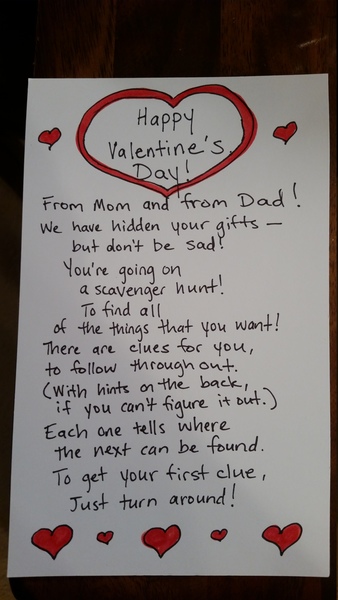 Happy
Valentine's
Day!
From Mom and from Dad!
We have hidden your gifts —
but don't be sad!
You're going on
a scavenger hunt!
To find all
of the things that you want!
There are clues for you,
to follow throughout.
(With hints on the back,
if you can't figure it out.)
Each one tells where
the next can be found.
To get your first clue,
Just turn around!